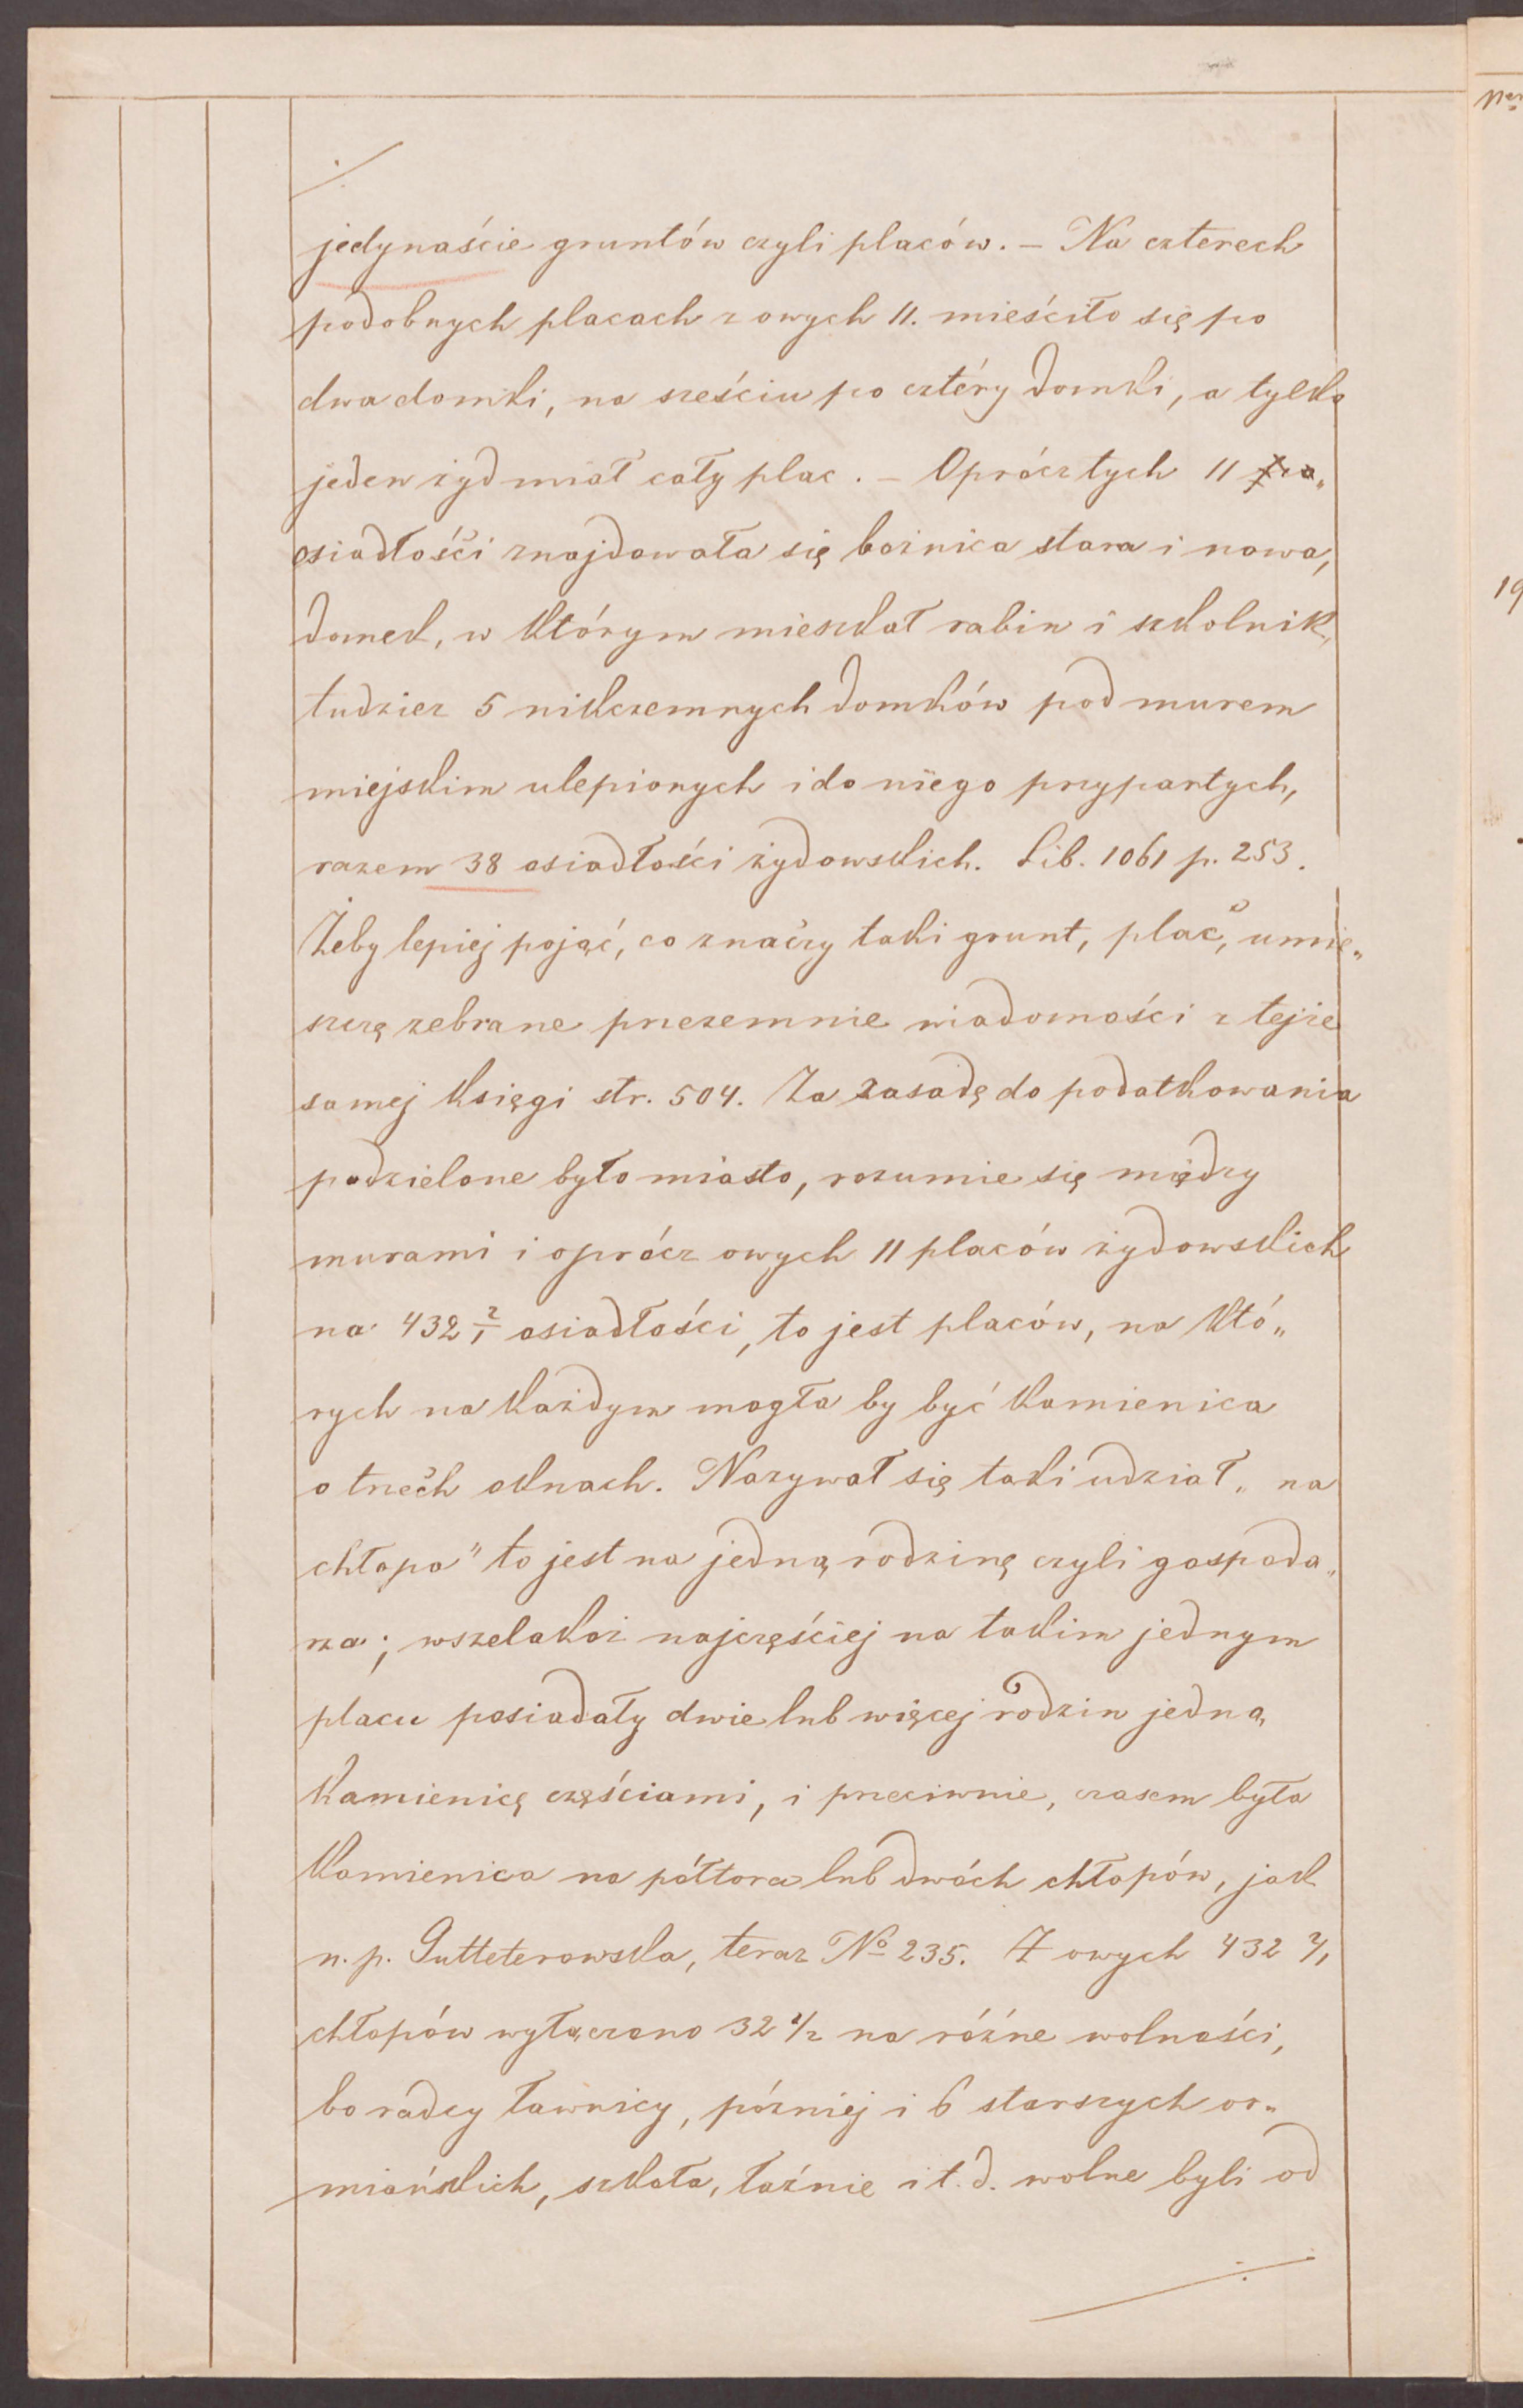 ./.
jedynaście gruntów czyli placów. — Na czterech
podobnych placach z owych 11. mieściło się po
dwa domki, na sześciu po cztéry domki, a tylko
jeden żyd miał cały plac. — Oprócz tych 11 po„
osiadłości znajdowała się bożnica stara i nowa,
domek, w którym mieszkał rabin i szkolnik,
tudzież 5 nikczemnych domków pod murem
miejskim ulepionych i do niego przypartych,
razem 38 osiadłości żydowskich. Lib. 1061 p. 253.
Żeby lepiej pojąć, co znaczy taki grunt, plac, umie„
szczę zebrane przezemnie wiadomości z tejże
samej księgi str. 504. Za zasadę do podatkowania
podzielone było miasto, rozumie się między
murami i oprócz owych 11 placów żydowskich
na 432 2/1 osiadłości, to jest placów, na któ„
rych na każdym mogła by być kamienica
o trzech oknach. Nazywał się taki udział „na
chłopa" to jest na jedną rodzinę czyli gospoda„
rza; wszelakoż najczęściej na takim jednym
placu posiadały dwie lub więcej rodzin jedną
kamienicę częściami, i przeciwnie, czasem była
kamienica na półtora lub dwóch chłopów, jak
n. p. Gutteterowska, teraz No 235. Z owych 432 2/1
chłopów wyłączono 32 1/2 na różne wolności,
bo radcy ławnicy, później i 6 starszych or„
miańskich, szkoła, łaźnie i t. d. wolne byli od
./.
19